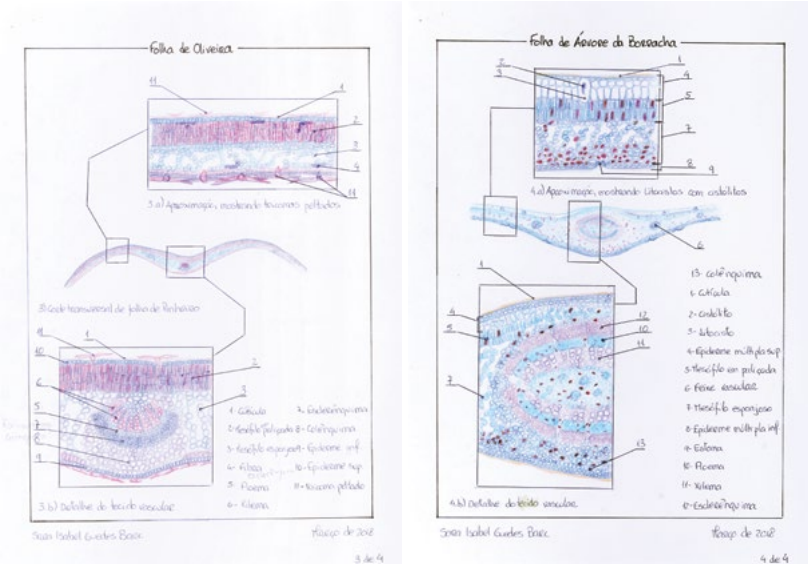 Folha de Oliveira
11
1
2
3
4
11
3.a) Aproximação, mostrando tricomas peltados
3) Corte transversal de folha de Pinheiro
9
1
10
2
6
3
5
7
8
9
1- Cutícula
2- Mesófilo paliçada
3- Mesófilo esponjoso
4- Fibra
5- Floema
6- Xilema
7- Esclerênquima
8- Colênquima
9- Epiderme inf.
10- Epiderme sup
11- Tricoma peltado
3.b) Detalhe do tecido vascular
Sara Isabel Guedes
Março de 2018
3 de 4
Folha de Árvore da Borracha
1
2
3
4
5
7
8
9
4.a) Aproximação, mostrando Litocistos com cistólitos
6
1
4
5
12
10
11
7
13
13- Colênquima
1- Cutícula
2- Cistólito
3- Litocisto
4- Epiderme múltipla sup
5- Mesófilo em paliçada
6- Feixe vascular
7- Mesófilo esponjoso
8- Epiderme múltipla inf.
9- Estoma
10- Floema
11- Xilema
12- Esclerênquima
4.b) Detalhe do tecido vascular
Sara Isabel Guedes
Março de 2018
4 de 4